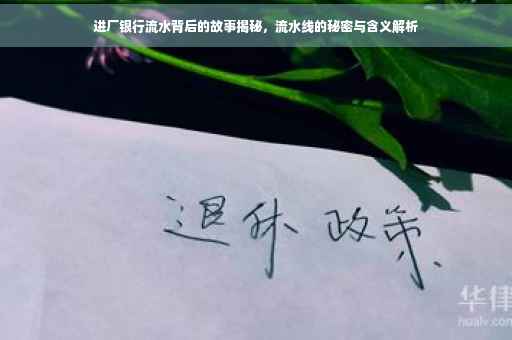 进厂银行流水背后的故事揭秘，流水线的秘密与含义解析
退休 政策
华律
hualv.com